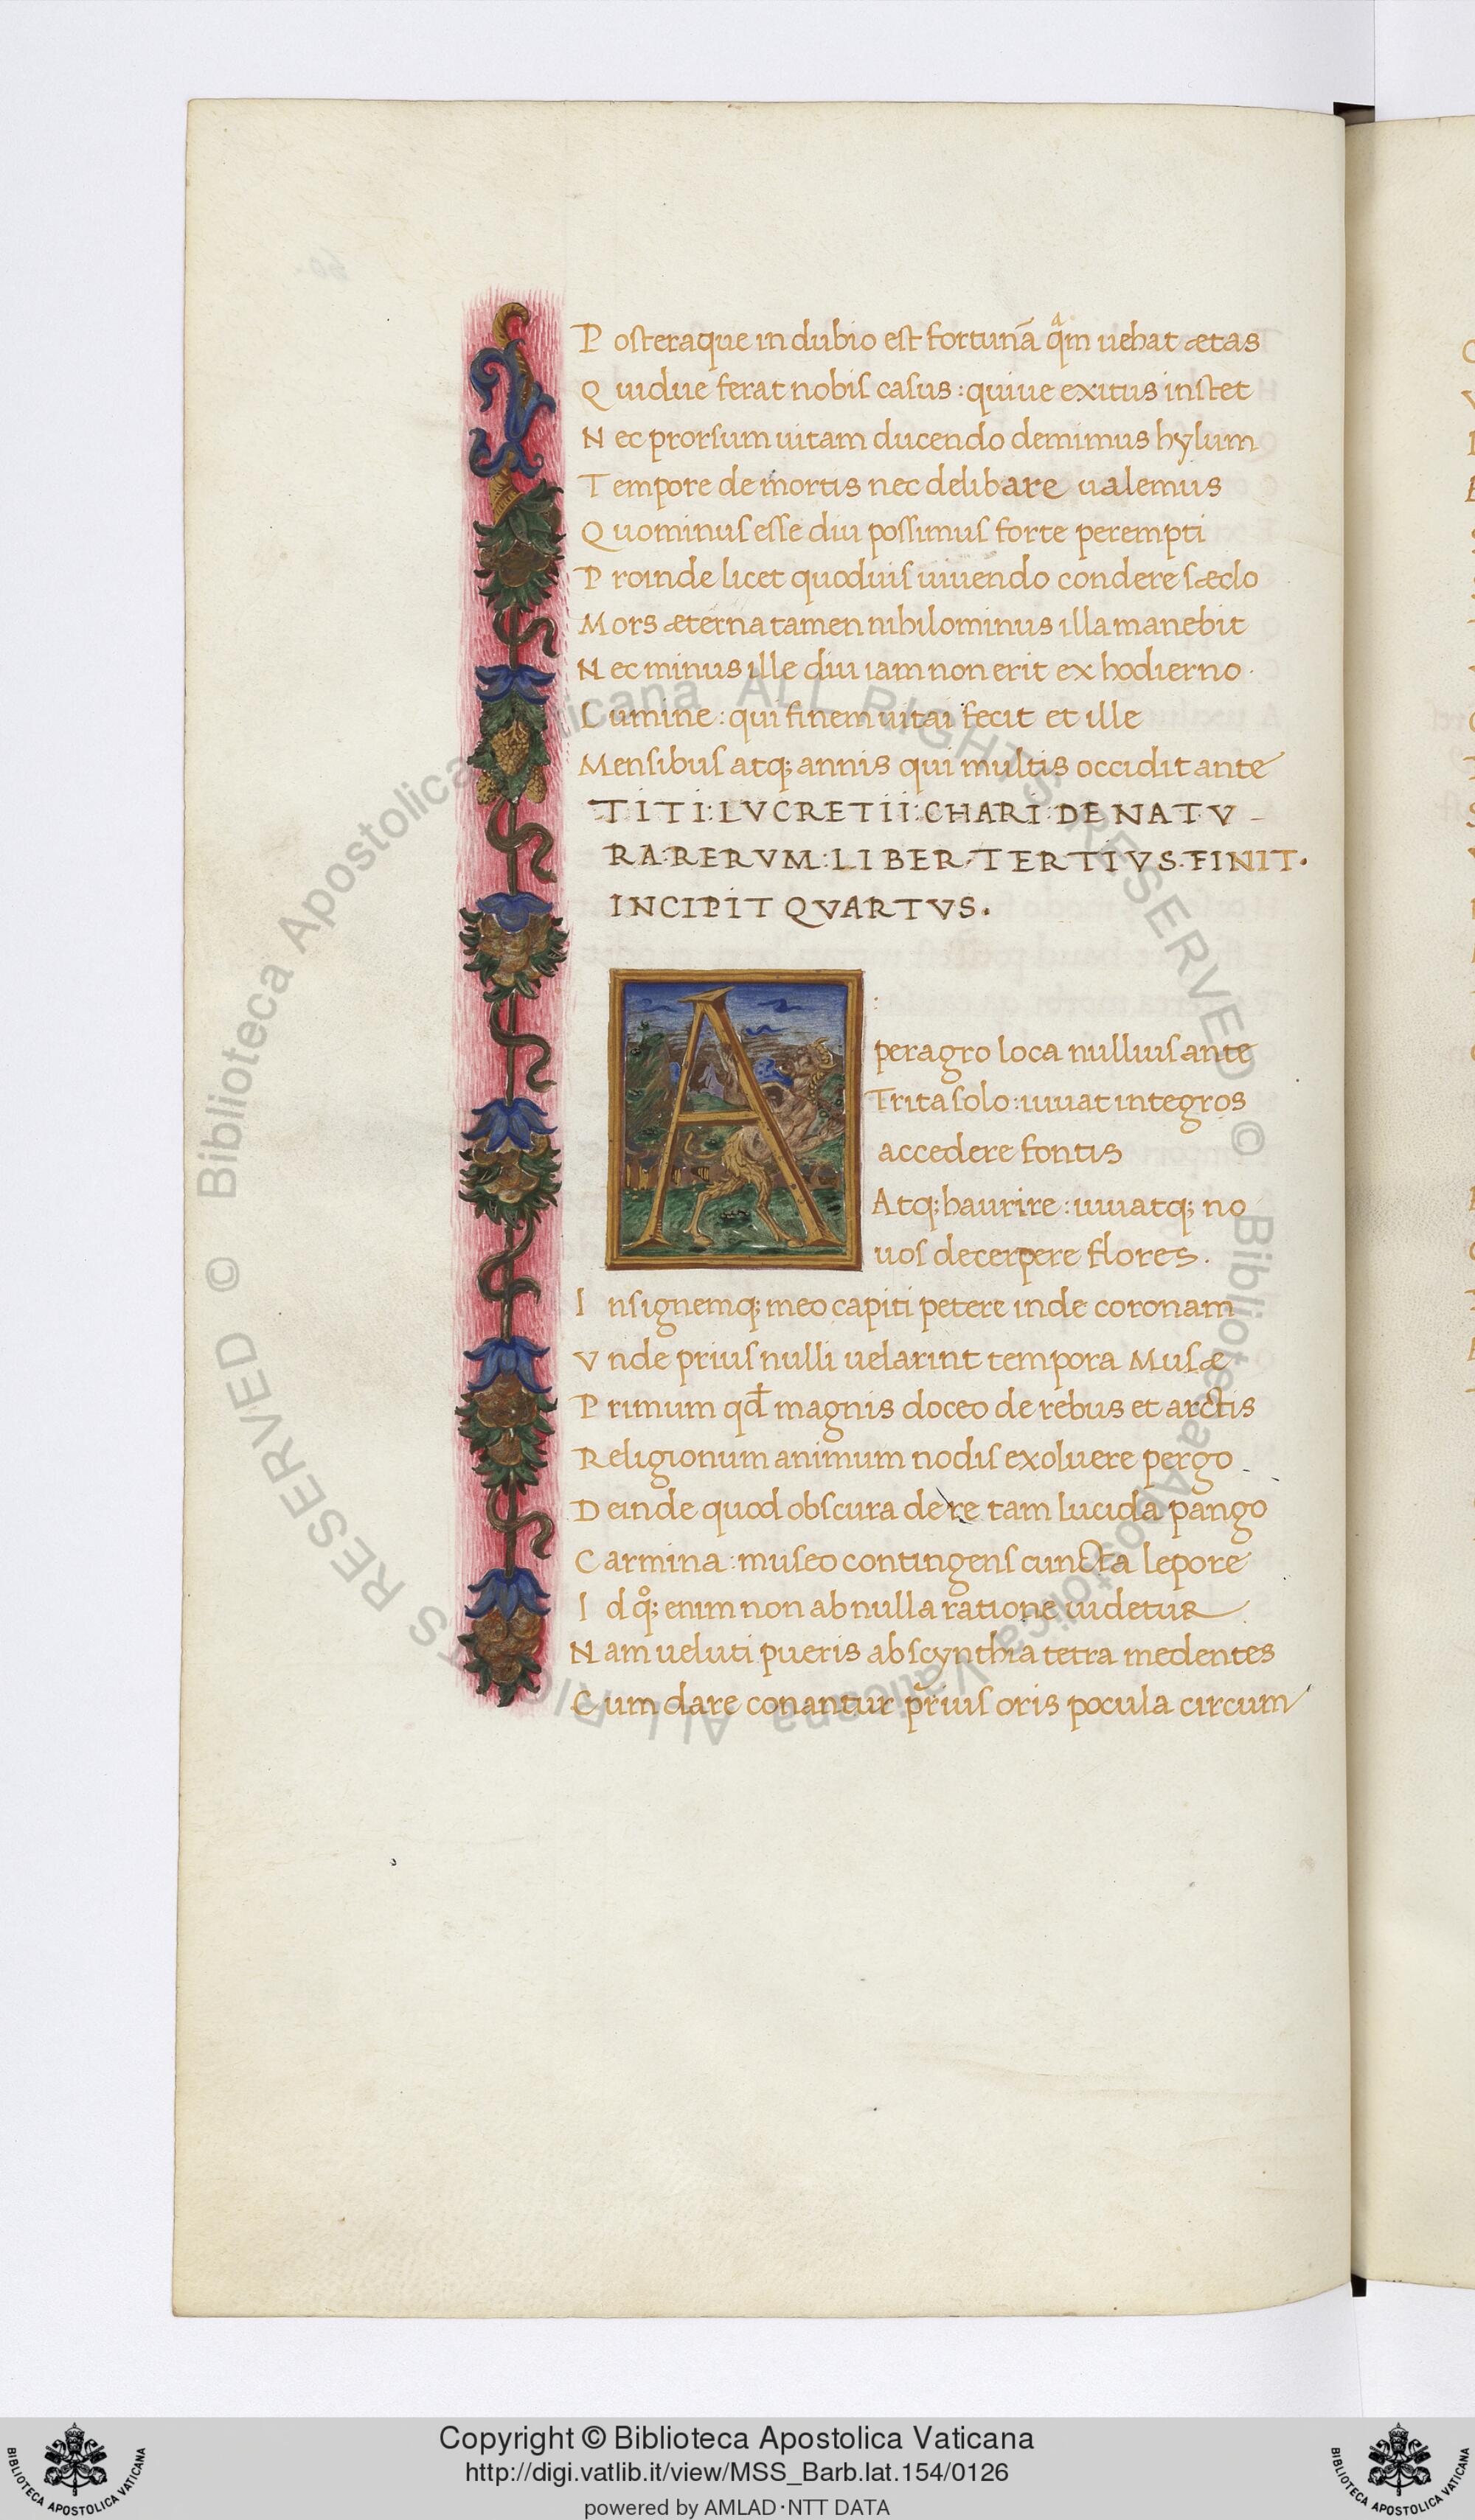 P osteraque in dubio est fortunā qᵃm uehat ætas
Q uidue ferat nobis casus : quiue exitus instet
N ec prorsum uitam ducendo demimus hylum
T empore de mortis nec delibare ualemus
Q uominus esse diu possimus forte perempti
P roinde licet quoduis uiuendo condere sæclo
Mors æterna tamen nihilominus illa manebit
N ec minus ille diu iam non erit ex hodierno
L umine : qui finem uitai fecit et ille
Mensibus atq; annis qui multis occidit ante
TITI : LVCRETII : CHARI · DE NATV -
RA : RERVM : LIBER · TERTIVS · FINIT ·
INCIPIT QVARTVS ·
A
peragro loca nullius ante
Trita solo : iuuat integros
accedere fontis
Atq; haurire : iuuatq; no
uos decerpere flores .
I nsignemq; meo capiti petere inde coronam
V nde prius nulli uelarint tempora Musæ
P rimum qđ magnis doceo de rebus et arctis
Religionum animum nodis exoluere pergo
D einde quod obscura de re tam lucida pango
C armina : museo contingens cuncta lepore
I d qͦ; enim non ab nulla ratione uidetur
N am ueluti pueris abscynthia tetra medentes
C um dare conantur prius oris pocula circum
© Biblioteca Apostolica Vaticana ALL RIGHTS RESERVED
© Biblioteca Apostolica Vaticana ALL RIGHTS RESERVED
Copyright © Biblioteca Apostolica Vaticana
http://digi.vatlib.it/view/MSS_Barb.lat.154/0126
powered by AMLAD·NTT DATA
BIBLIOTECA APOSTOLICA VATICANA
BIBLIOTECA APOSTOLICA VATICANA